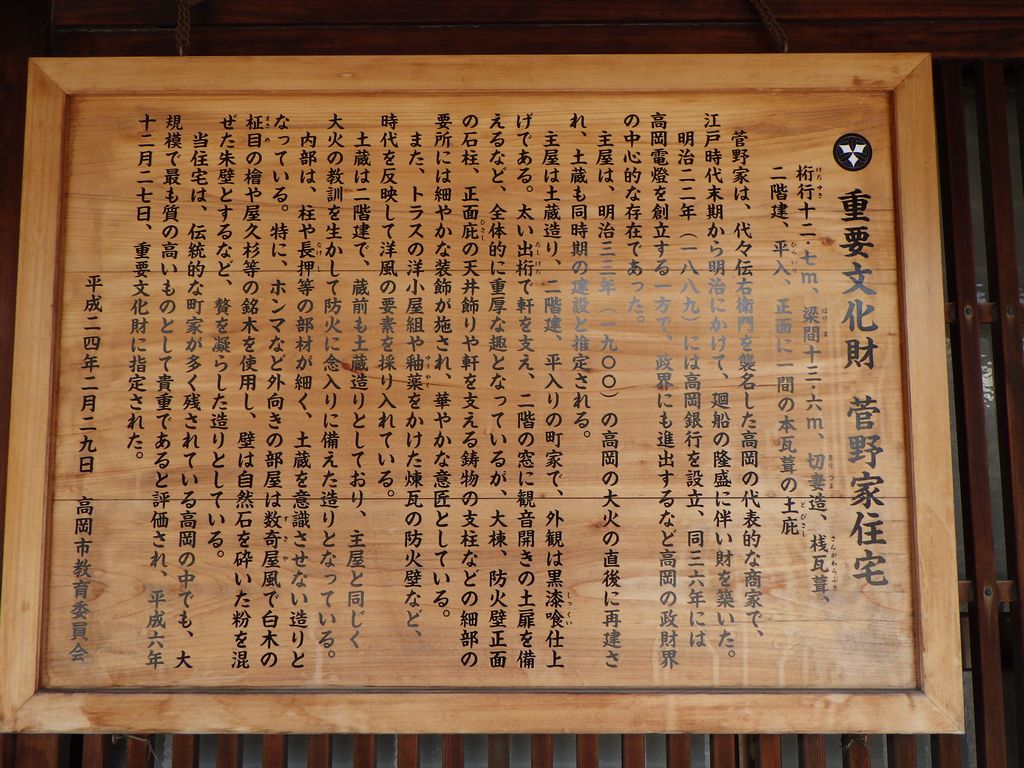 重要文化財 菅野家住宅
桁行十二・七m、梁間十三・六m、切妻造、桟瓦葺、
二階建、平入、正面に一間の本瓦葺の土庇
菅野家は、代々伝右衛門を襲名した高岡の代表的な商家で、
江戸時代末期から明治にかけて、廻船の隆盛に伴い財を築いた。
明治二二年(一八八九)には高岡銀行を設立、同三六年には
高岡電燈を創立する一方で、政界にも進出するなど高岡の政財界
の中心的な存在であった。
主屋は、明治三三年(一九〇〇)の高岡の大火の直後に再建さ
れ、土蔵も同時期の建設と推定される。
主屋は土蔵造り、二階建、平入りの町家で、外観は黒漆喰仕上
げである。太い出桁で軒を支え、二階の窓に観音開きの土扉を備
えるなど、全体的に重厚な趣となっているが、大棟、防火壁正面
の石柱、正面庇の天井飾りや軒を支える鋳物の支柱などの細部の
要所には細やかな装飾が施され、華やかな意匠としている。
また、トラスの洋小屋組や釉薬をかけた煉瓦の防火壁など、
時代を反映して洋風の要素を採り入れている。
土蔵は二階建で、蔵前も土蔵造りとしており、主屋と同じく
大火の教訓を生かして防火に念入りに備えた造りとなっている。
内部は、柱や長押等の部材が細く、土蔵を意識させない造りと
なっている。特に、ホンマなど外向きの部屋は数奇屋風で白木の
柾目の檜や屋久杉等の銘木を使用し、壁は自然石を砕いた粉を混
ぜた朱壁とするなど、贅を凝らした造りとしている。
当住宅は、伝統的な町家が多く残されている高岡の中でも、大
規模で最も質の高いものとして貴重であると評価され、平成六年
十二月二七日、重要文化財に指定された。
平成二四年二月二九日 高岡市教育委員会